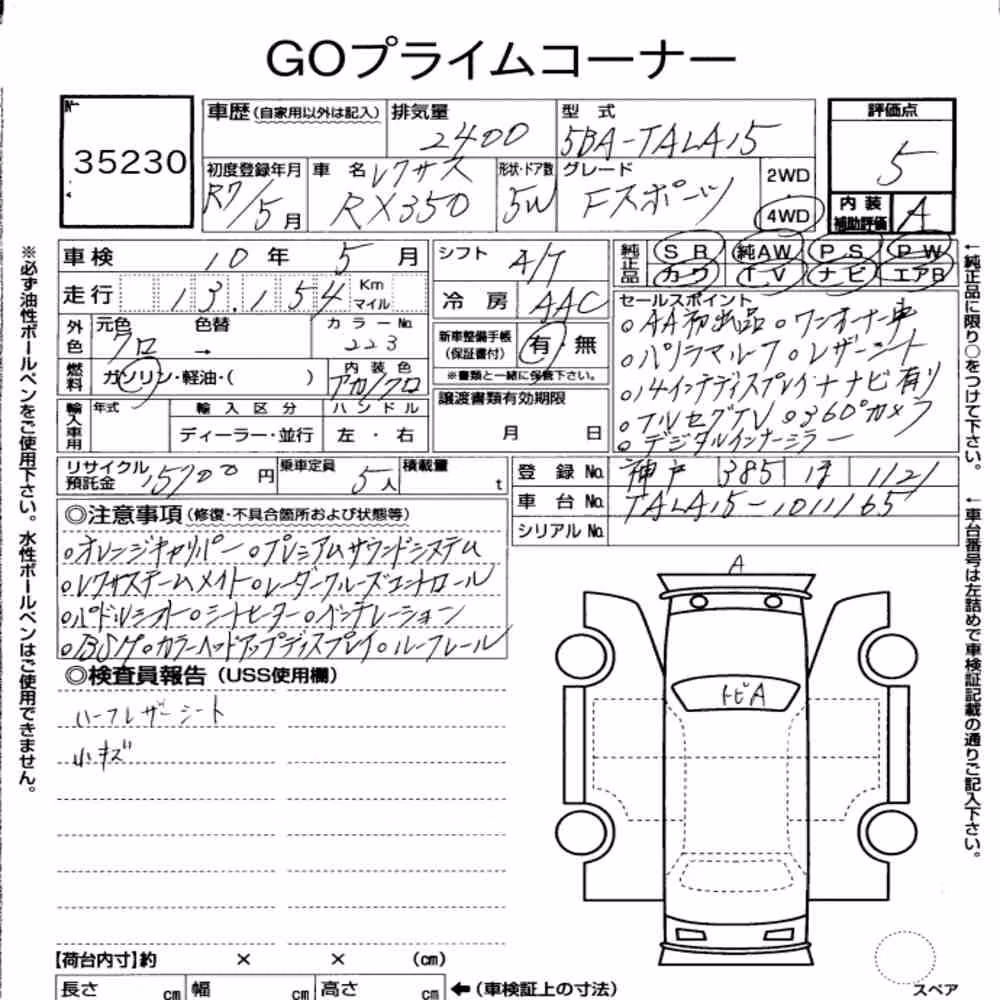 GOプライムコーナー
No.
35230
車歴(自家用以外は記入)
排気量
2400
型式
5BA-TALA15
評価点
5
初度登録年月
R7/5月
車名
レクサス
RX350
形状・ドア数
5W
グレード
Fスポーツ
2WD
4WD
内装
補助評価
A
車検 10年 5月
シフト
A/T
純正品
SR 純AW PS PW
カワ TV ナビ エアB
走行 13,154 Km
マイル
冷房 AAC
セールスポイント
○AA初出品 ○ワンオーナー車
○パノラマルーフ ○レザーシート
○14インチディスプレイ ナビ有り
○フルセグTV ○360°カメラ
○デジタルインナーミラー
外色
元色
クロ
色替
→
カラーNo.
223
新車整備手帳
(保証書付)
有・無
※書類と一緒に保管下さい。
燃料
ガソリン・軽油・( )
内装色
アカ/クロ
輸入車用
年式
輸入区分
ディーラー・並行
ハンドル
左・右
譲渡書類有効期限
月 日
リサイクル
預託金
15700円
乗車定員
5人
積載量
t
登録No. 神戸 385 ほ 1121
車台No. TALA15-1011165
シリアルNo.
◎注意事項(修復・不具合箇所および状態等)
○オレンジキャリパー ○プレミアムサウンドシステム
○レクサスチームメイト ○レーダークルーズコントロール
○パドルシフト ○シートヒーター ○ベンチレーション
○BSM ○カラーヘッドアップディスプレイ ○ルーフレール
◎検査員報告(USS使用欄)
ハーフレザーシート
小キズ
A
トビA
【荷台内寸】約 × × (cm)
長さ cm 幅 cm 高さ cm
←(車検証上の寸法)
スペア
※必ず油性ボールペンをご使用下さい。水性ボールペンはご使用できません。
←純正品に限り○をつけて下さい。
←車台番号は左詰めで車検証記載の通りご記入下さい。